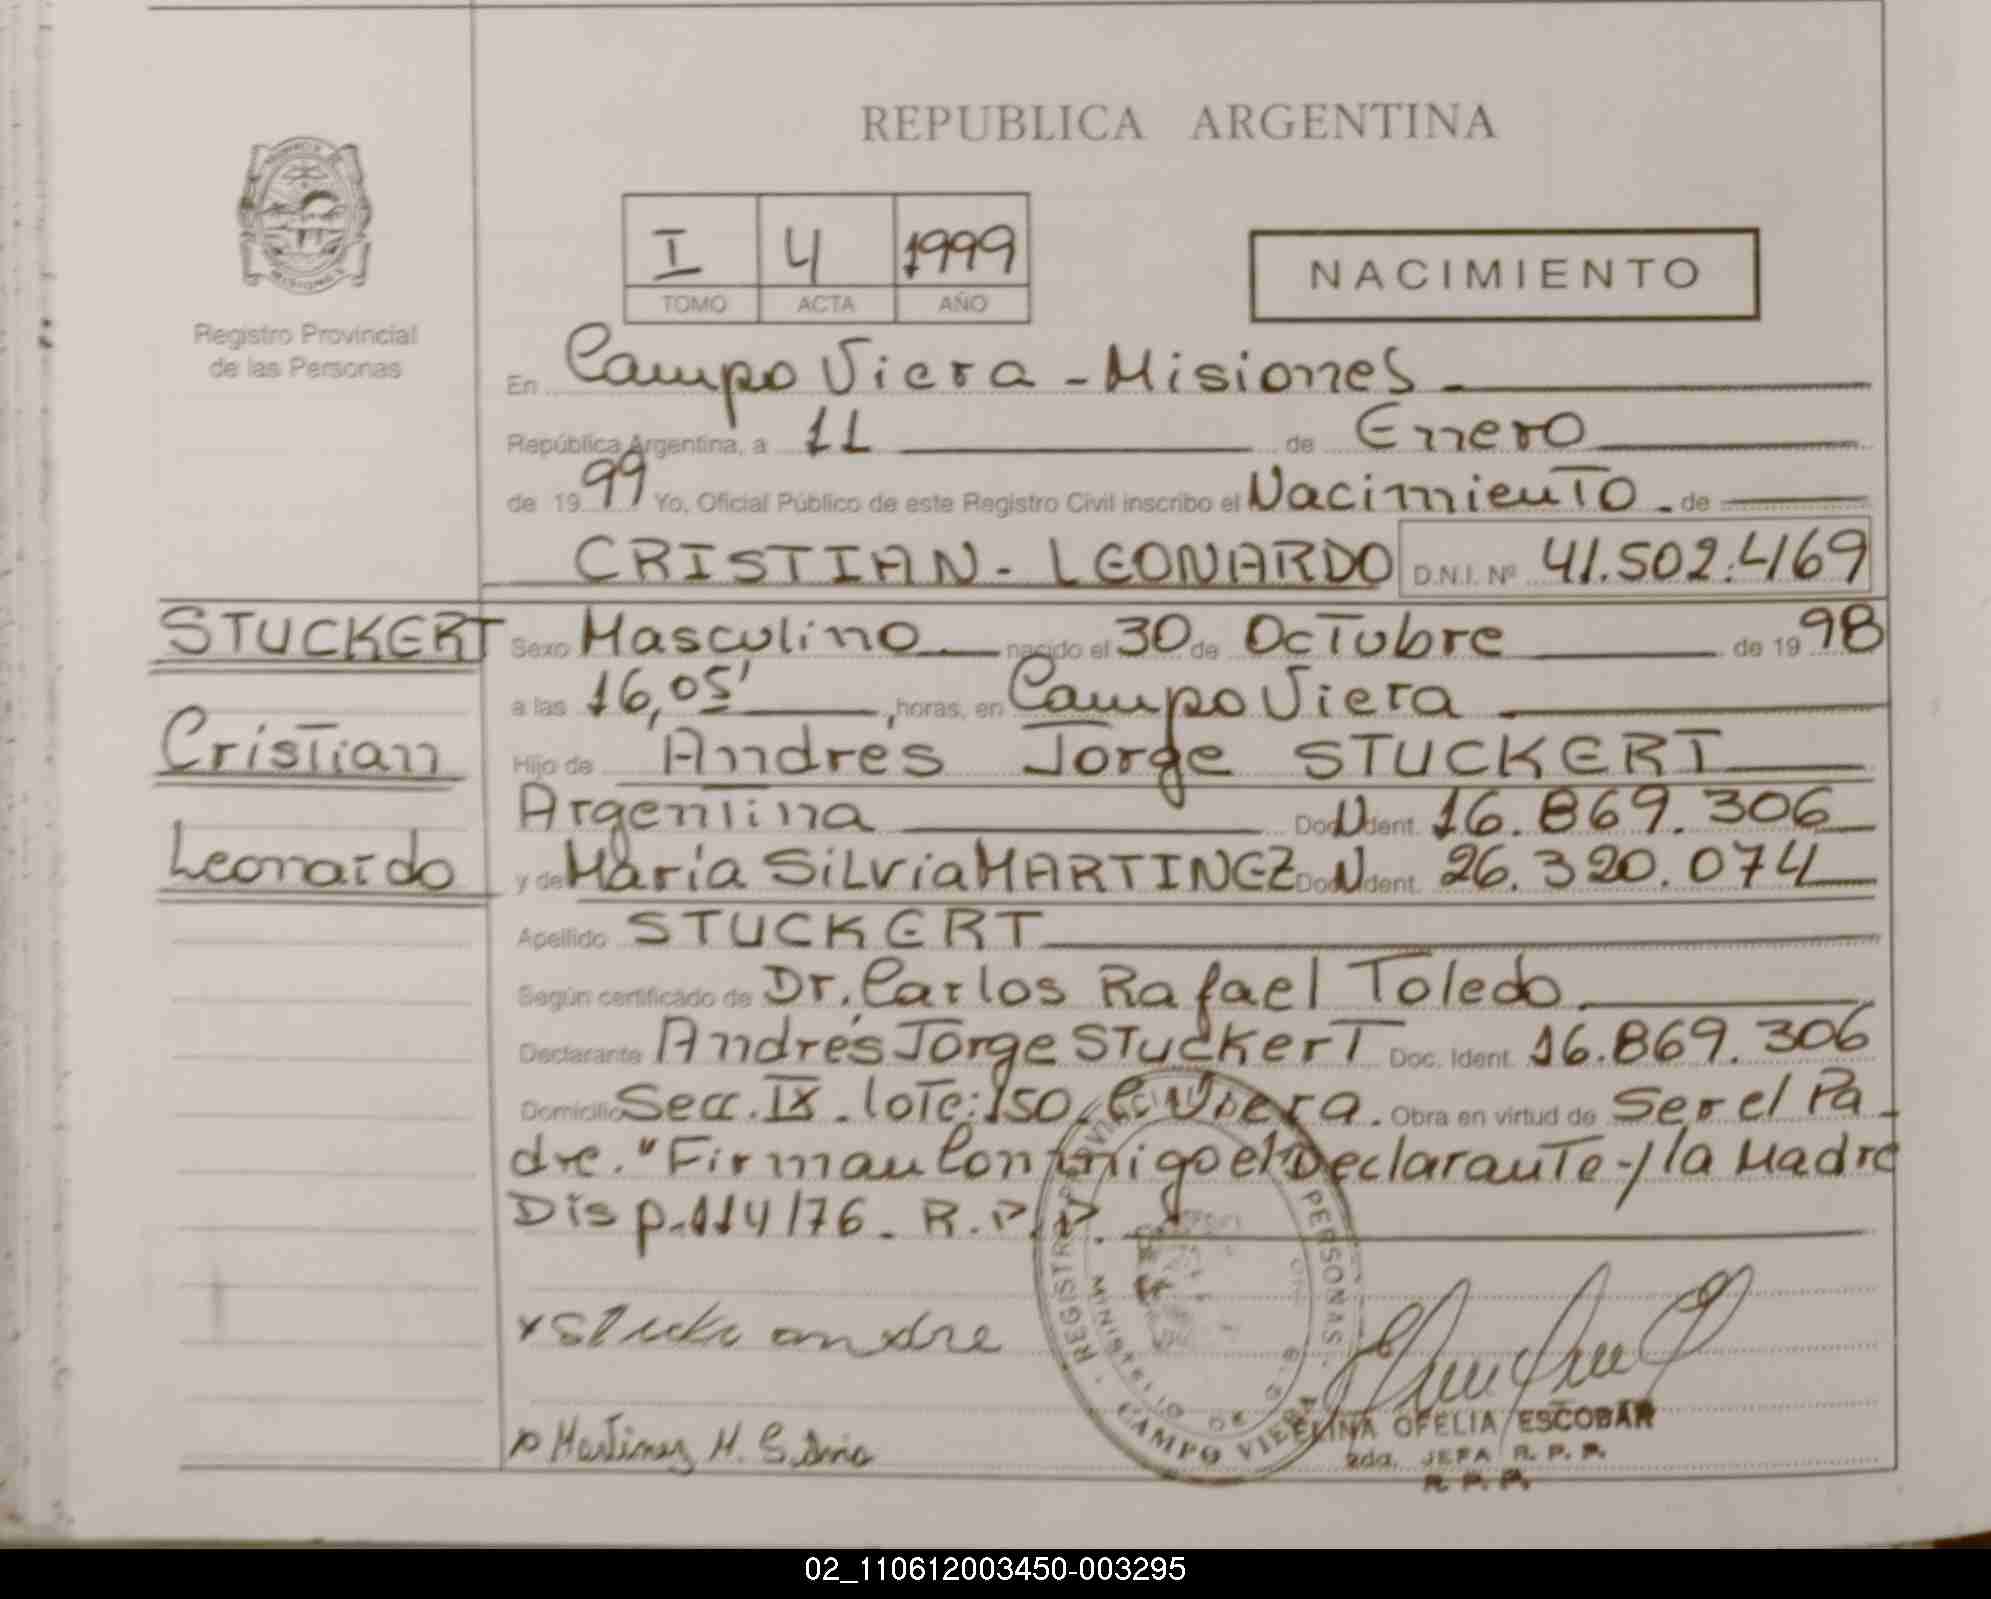 REPUBLICA ARGENTINA
I 4 1999
TOMO ACTA AÑO
NACIMIENTO
Registro Provincial
de las Personas
En Campo Viera - Misiones
República Argentina, a 11 de Enero
de 1999 Yo, Oficial Público de este Registro Civil inscribo el Nacimiento de
CRISTIAN - LEONARDO D.N.I. Nº 41.502.469
STUCKERT
Cristian
Leonardo
Sexo Masculino nacido el 30 de Octubre de 1998
a las 16,05' horas, en Campo Viera
Hijo de Andrés Jorge STUCKERT
Argentina Doc. Ident. 16.869.306
y de María Silvia MARTINEZ Doc. Ident. 26.320.074
Apellido STUCKERT
Según certificado de Dr. Carlos Rafael Toledo
Declarante Andrés Jorge Stuckert Doc. Ident. 16.869.306
Domicilio Secc. IX - lote: 150. C. Viera. Obra en virtud de Ser el Pa-
dre. "Firman Conmigo el Declarante -/ la Madre
Disp. 114/76 - R.P.P.
REGISTRO PROVINCIAL PERSONAS
MINISTERIO DE
CAMPO VIERA
Martinez M. Silvia
ELINA OFELIA ESCOBAR
2da. JEFA R. P. P.
R. P. P.
02_110612003450-003295